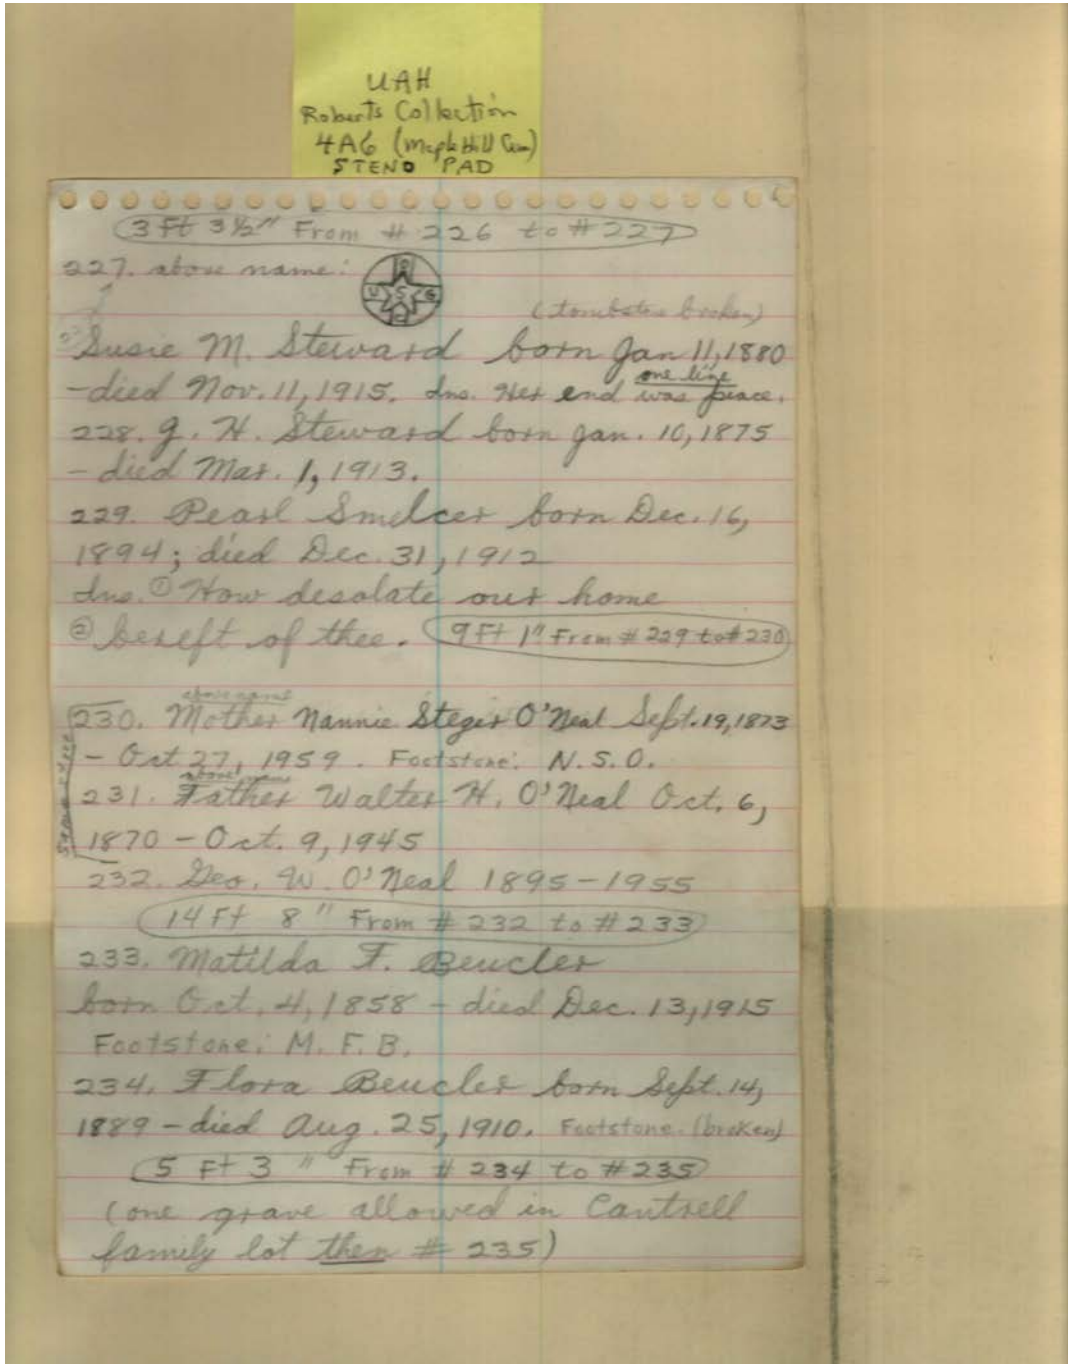 UAH
Roberts Collection
4A6 (Maple Hill Cem)
STENO PAD
3 Ft 3½" From # 226 to # 227
227. above name:
U S G
(tombstone broken)
Susie M. Steward born Jan 11, 1880
one line
- died Nov. 11, 1915. Ins. Her end was peace.
228. G. H. Steward born Jan. 10, 1875
- died Mar. 1, 1913.
229. Pearl Smelcer born Dec. 16,
1894; died Dec. 31, 1912
Ins. ① How desolate our home
② bereft of thee. 9 Ft 1" From # 229 to # 230
above name
230. Mother Nannie Steger O'Neal Sept. 19, 1873
- Oct 27, 1959. Footstone: N. S. O.
above name
231. Father Walter H. O'Neal Oct. 6,
1870 - Oct. 9, 1945
232. Geo. W. O'Neal 1895-1955
14 Ft 8" From # 232 to # 233
233. Matilda F. Beucler
born Oct. 4, 1858 - died Dec. 13, 1915
Footstone: M. F. B.
234. Flora Beucler born Sept. 14,
1889 - died Aug. 25, 1910. Footstone. (broken)
5 Ft 3" From # 234 to # 235
(one grave allowed in Cantrell
family lot then # 235)